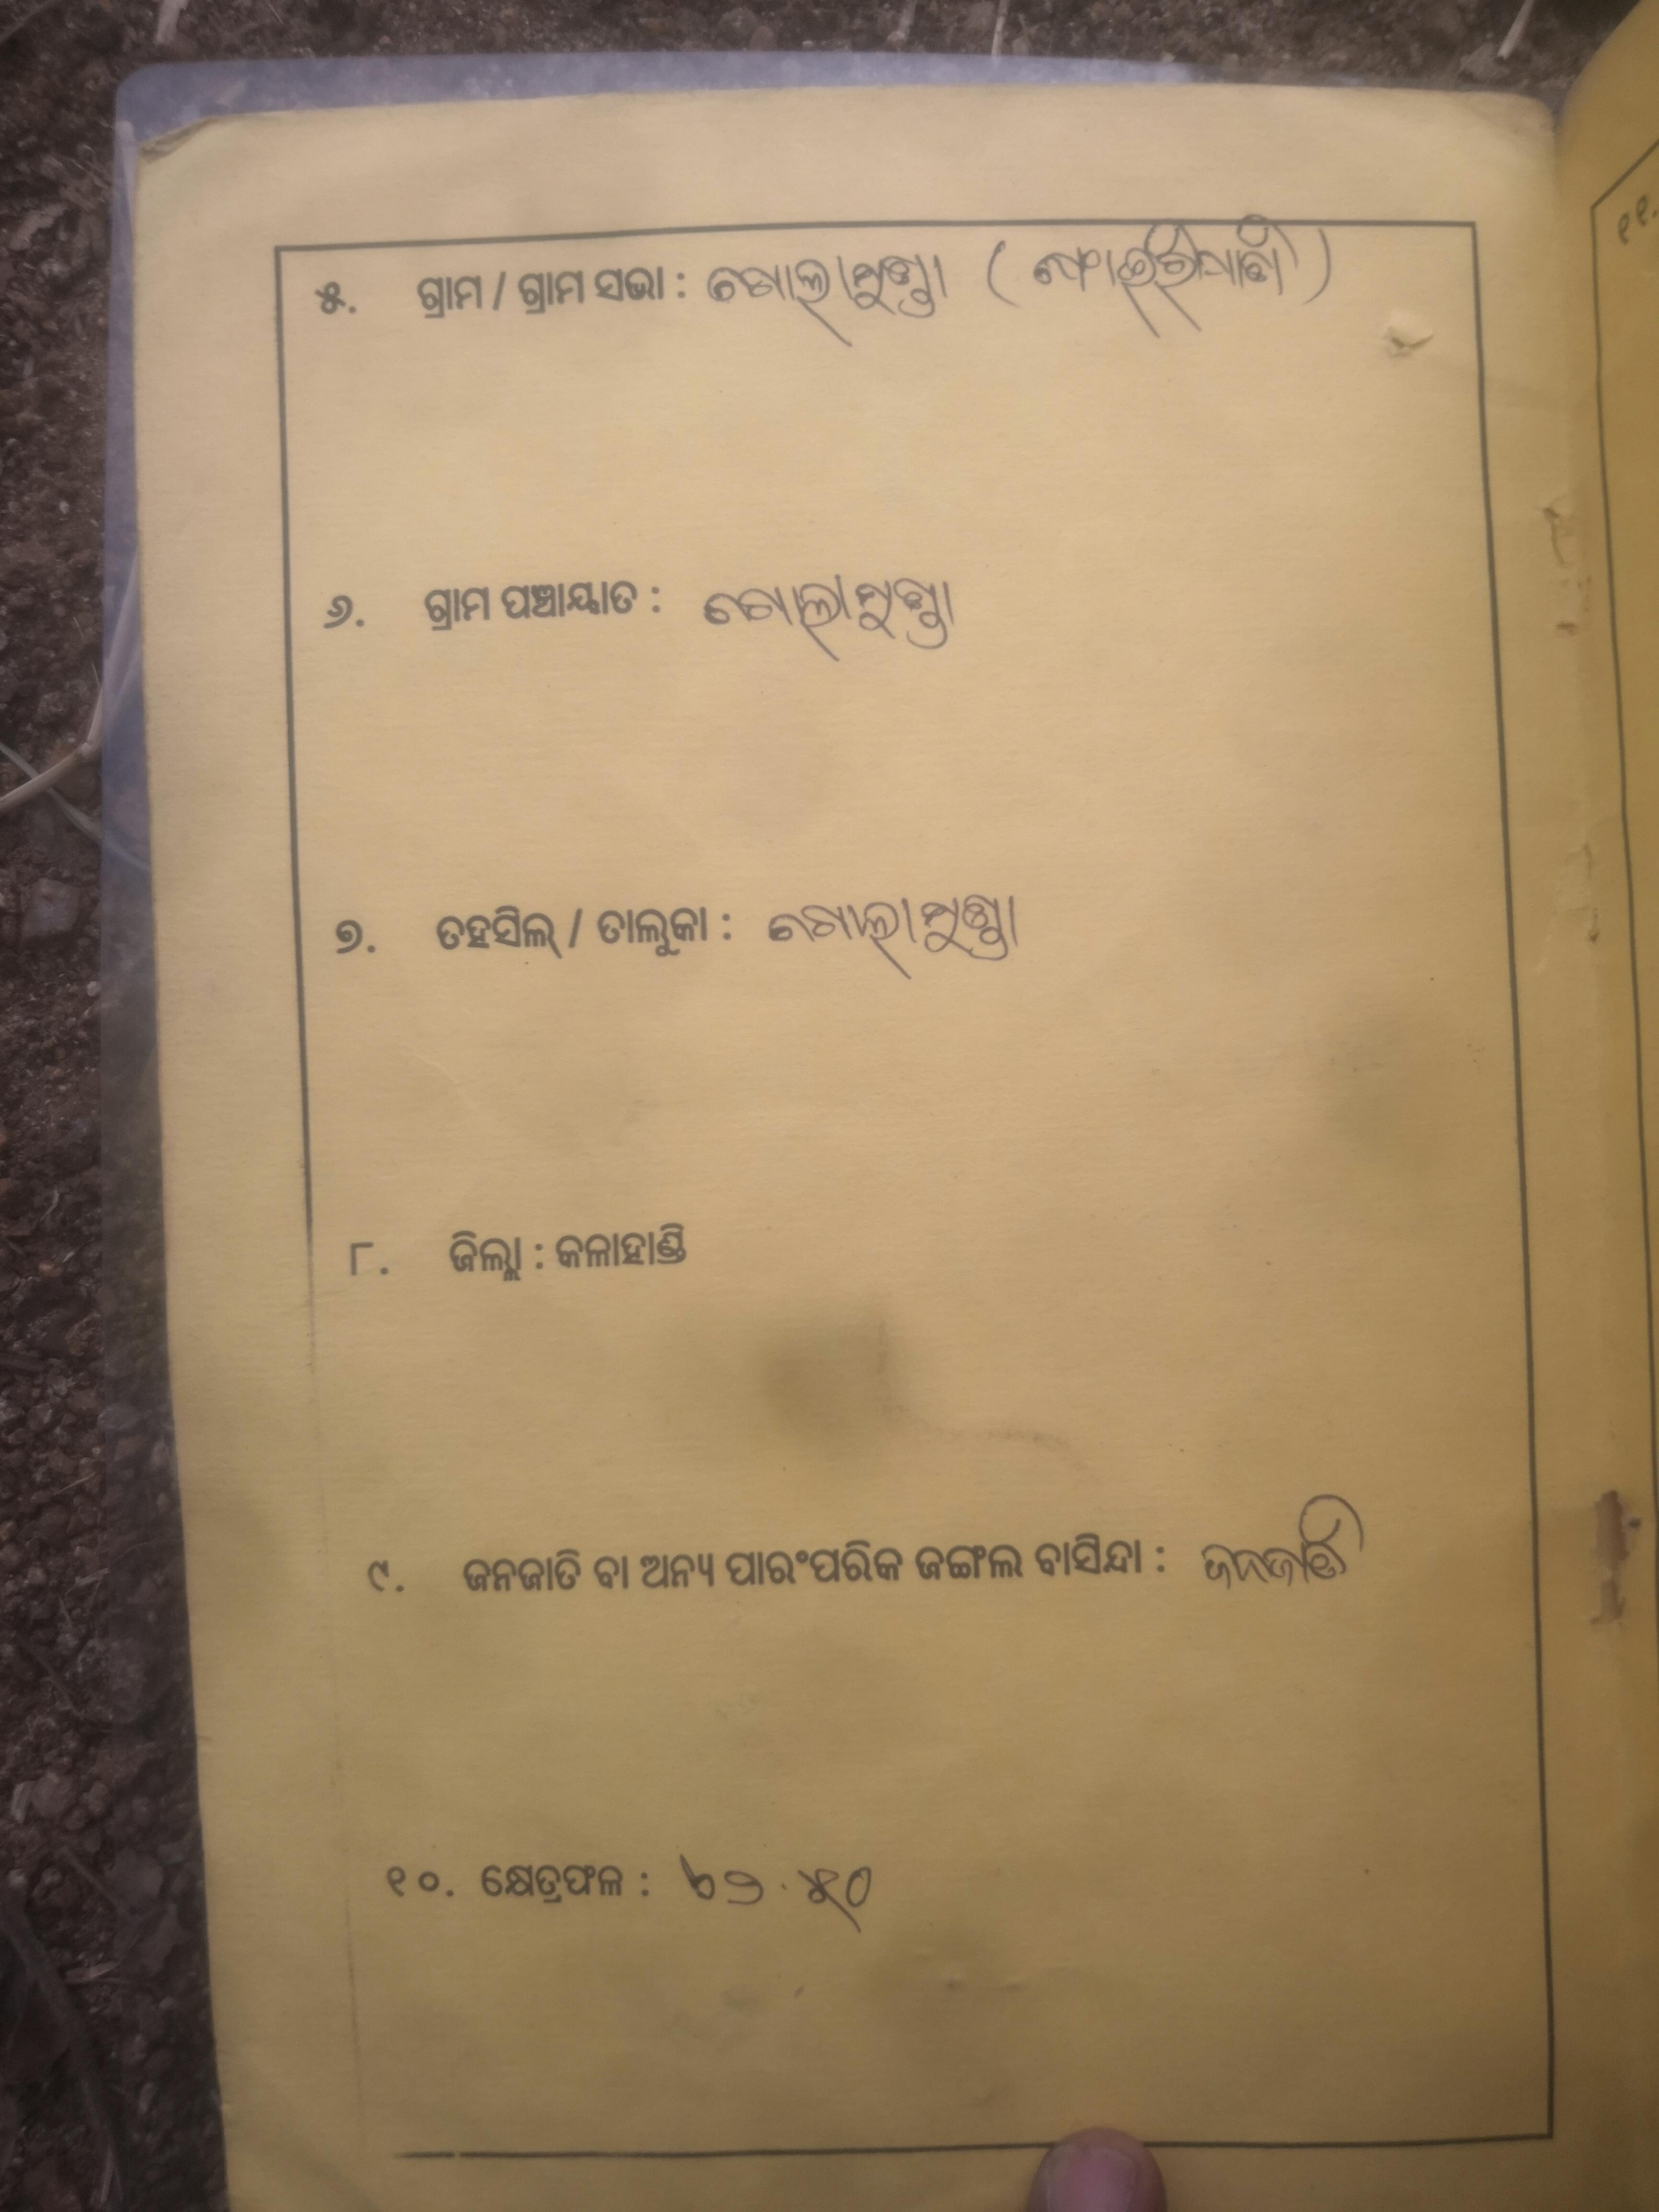 ୫. ଗ୍ରାମ / ଗ୍ରାମ ସଭା : ଗୋଲାମୁଣ୍ଡା
୬. ଗ୍ରାମ ପଞ୍ଚାୟାତ : ଗୋଲାମୁଣ୍ଡା
୭. ତହସିଲ୍ / ତାଲୁକା : ଗୋଲାମୁଣ୍ଡା
୮. ଜିଲ୍ଲା : କଳାହାଣ୍ଡି
୯. ଜନଜାତି ବା ଅନ୍ୟ ପାରଂପରିକ ଜଙ୍ଗଲ ବାସିନ୍ଦା : ଜନଜାତି
୧୦. କ୍ଷେତ୍ରଫଳ :
୧୧.